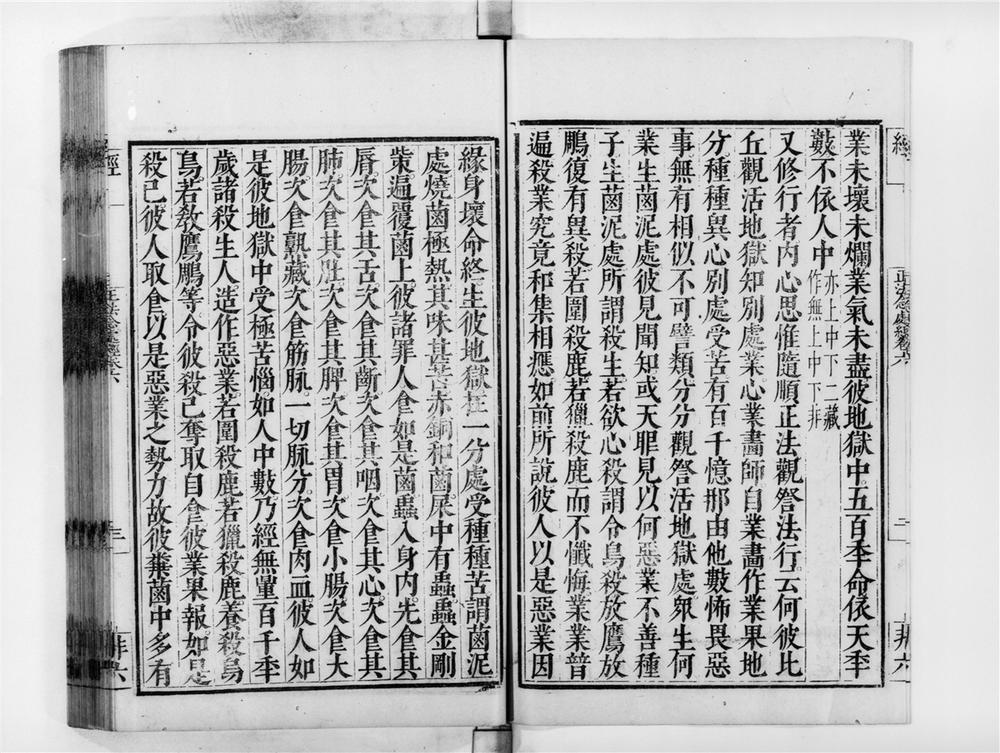 業未壞未爛業氣未盡彼地獄中五百季命依天季
數不依人中亦上中下二藏
作無上中下非
又修行者内心思惟隨順正法觀咎法行云何彼比
丘觀活地獄知别處業心業畫師自業畫作業果地
分種種異心别處受苦有百千憶那由他數怖畏惡
事無有相似不可譬類分分觀咎活地獄處衆生何
業生𡱁泥處彼見聞知或天眼見以何惡業不善種
子生𡱁泥處所謂殺生若欲心殺謂令鳥殺放鷹放
鵰復有異殺若圍殺鹿若獵殺鹿而不懺悔業業普
遍殺業究竟和集相應如前所說彼人以是惡業因
緣身壞命終生彼地獄在一分處受種種苦謂𡱁泥
處燒𡱁極熱其味甚苦赤銅和𡱁屎中有蟲蟲金剛
㭰遍覆𡱁上彼諸罪人食如是𡱁蟲入身内先食其
脣次食其舌次食其齗次食其咽次食其心次食其
肺次食其肚次食其脾次食其胃次食小腸次食大
腸次食熟藏次食筋脉一切脉分次食肉血彼人如
是彼地獄中受極苦惱如人中數乃經無量百千季
歲諸殺生人造作惡業若圍殺鹿若獵殺鹿養殺鳥
鳥若教鷹鵰等令彼殺已奪取自食彼業果報如是
殺已彼人取食以是惡業之勢力故彼糞𡱁中多有
經
正法念處經卷六
二
非六
經
三
非六